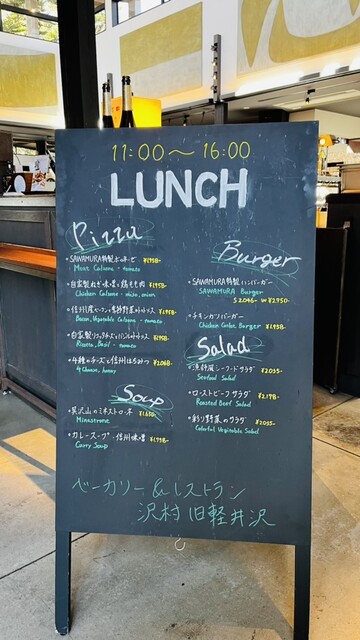 11:00〜16:00
LUNCH
Pizza
・SAWAMURA特製 ¥1958-
Meat Calzone - tomato
・自家製ねぎ味噌と鶏もも肉 ¥1958-
Chicken Calzone - miso, onion
・信州産ベーコンと季節野菜 ¥1958-
Bacon, Vegetable Calzone - tomato
・自家製リコッタチーズとバジル ¥1958-
Ricotta, Basil - tomato
・4種のチーズと信州はちみつ ¥2068-
4 Cheese, honey
Soup
・具沢山のミネストローネ ¥1650-
Minestrone
・カレースープ・信州味噌 ¥1758-
Curry Soup
Burger
・SAWAMURA特製ハンバーガー
SAWAMURA Burger
S 2046- W ¥2950-
・チキンカツバーガー
Chicken Cutlet Burger ¥1958-
Salad
・漁師風シーフードサラダ ¥2035-
Seafood Salad
・ローストビーフサラダ ¥2178-
Roasted Beef Salad
・彩り野菜のサラダ ¥2035-
Colorful Vegetable Salad
ベーカリー&レストラン
沢村 旧軽井沢